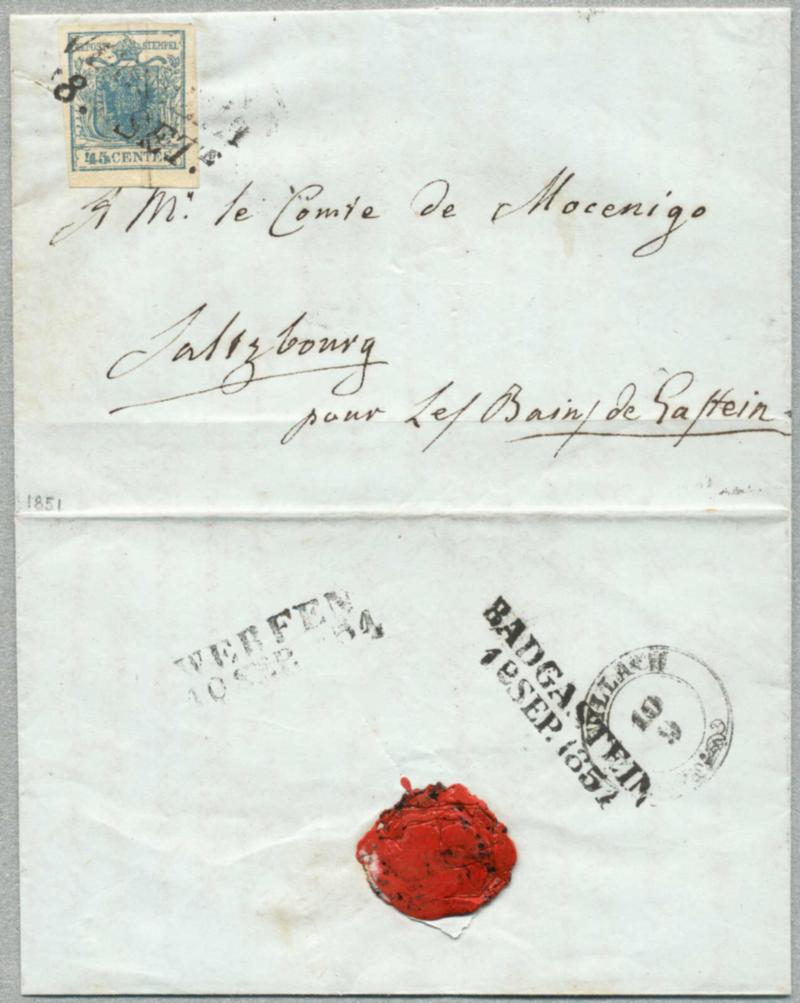 KKPOST STEMPEL
45 CENTES
8. SET.
A Mr. le Comte de Mocenigo
Saltzbourg
pour Les Bains de Gastein
1851
WERFEN
10 SEP.
BADGASTEIN
SEP. 1851
VILLACH
10
9